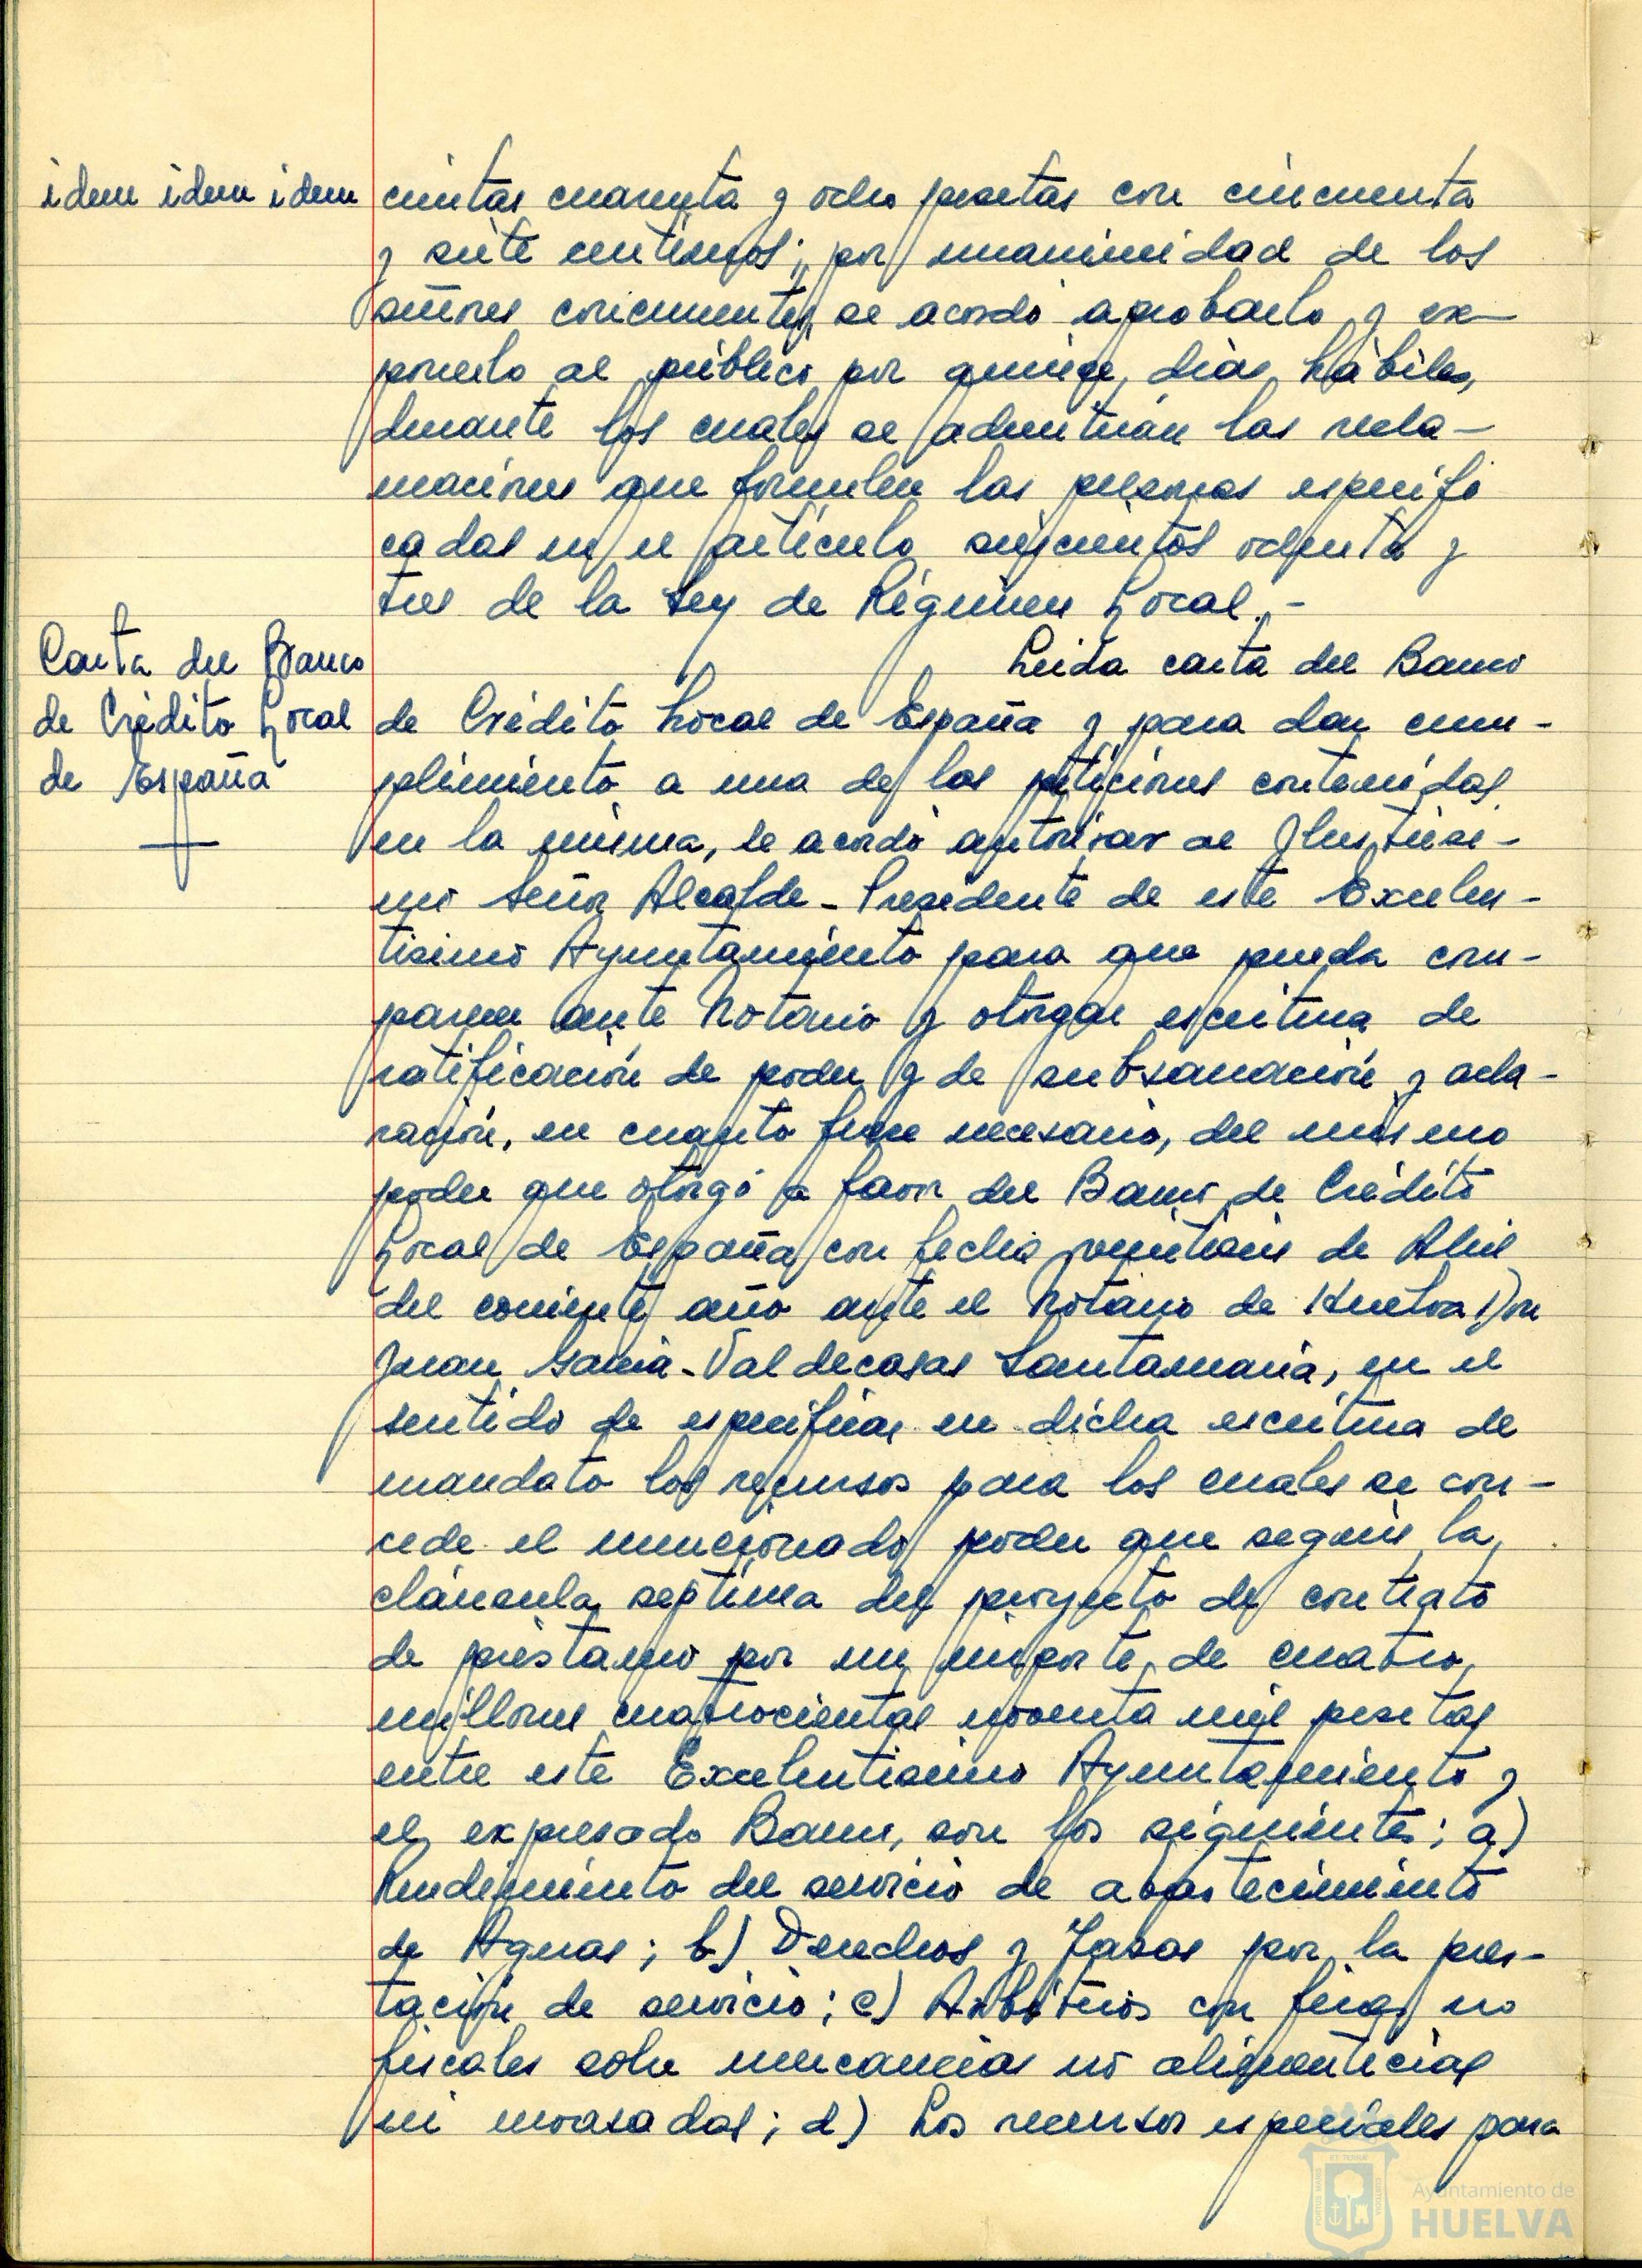 idem idem idem
cientas cuarenta y ocho pesetas con cincuenta
y siete centimos; por unanimidad de los
señores concurrentes, se acordó aprobarlo y ex-
ponerlo al público por quince días hábiles,
durante los cuales se admitirán las recla-
maciones que formulen las personas especifi
cadas en el artículo seiscientos ochenta y
tres de la Ley de Régimen Local.-
Carta del Banco
de Crédito Local
de España
Leida carta del Banco
de Crédito Local de España y para dar cum-
plimiento a una de las peticiones contenidas
en la misma, se acordó autorizar al Ilustrisi-
mo Señor Alcalde-Presidente de este Excelen-
tisimo Ayuntamiento para que pueda com-
parecer ante Notario y otorgar escritura de
ratificación de poder y de subsanación y acla-
ración, en cuanto fuere necesario, del mismo
poder que otorgó a favor del Banco de Crédito
Local de España con fecha veintiseis de Abril
del corriente año ante el Notario de Huelva Don
Juan García-Valdecasas Santamaría, en el
sentido de especificar en dicha escritura de
mandato los recursos para los cuales se con-
cede el mencionado poder que según la
cláusula septima del proyecto de contrato
de préstamo por un importe de cuatro
millones cuatrocientas noventa mil pesetas
entre este Excelentisimo Ayuntamiento y
el expresado Banco, son los siguientes; a)
Rendimiento del servicio de abastecimiento
de Aguas; b) Derechos y Tasas por la pres-
tación de servicio; c) Arbitrios con fines no
fiscales sobre mercancias no alimenticias
ni envasadas; d) Los recursos especiales para
Ayuntamiento de
HUELVA